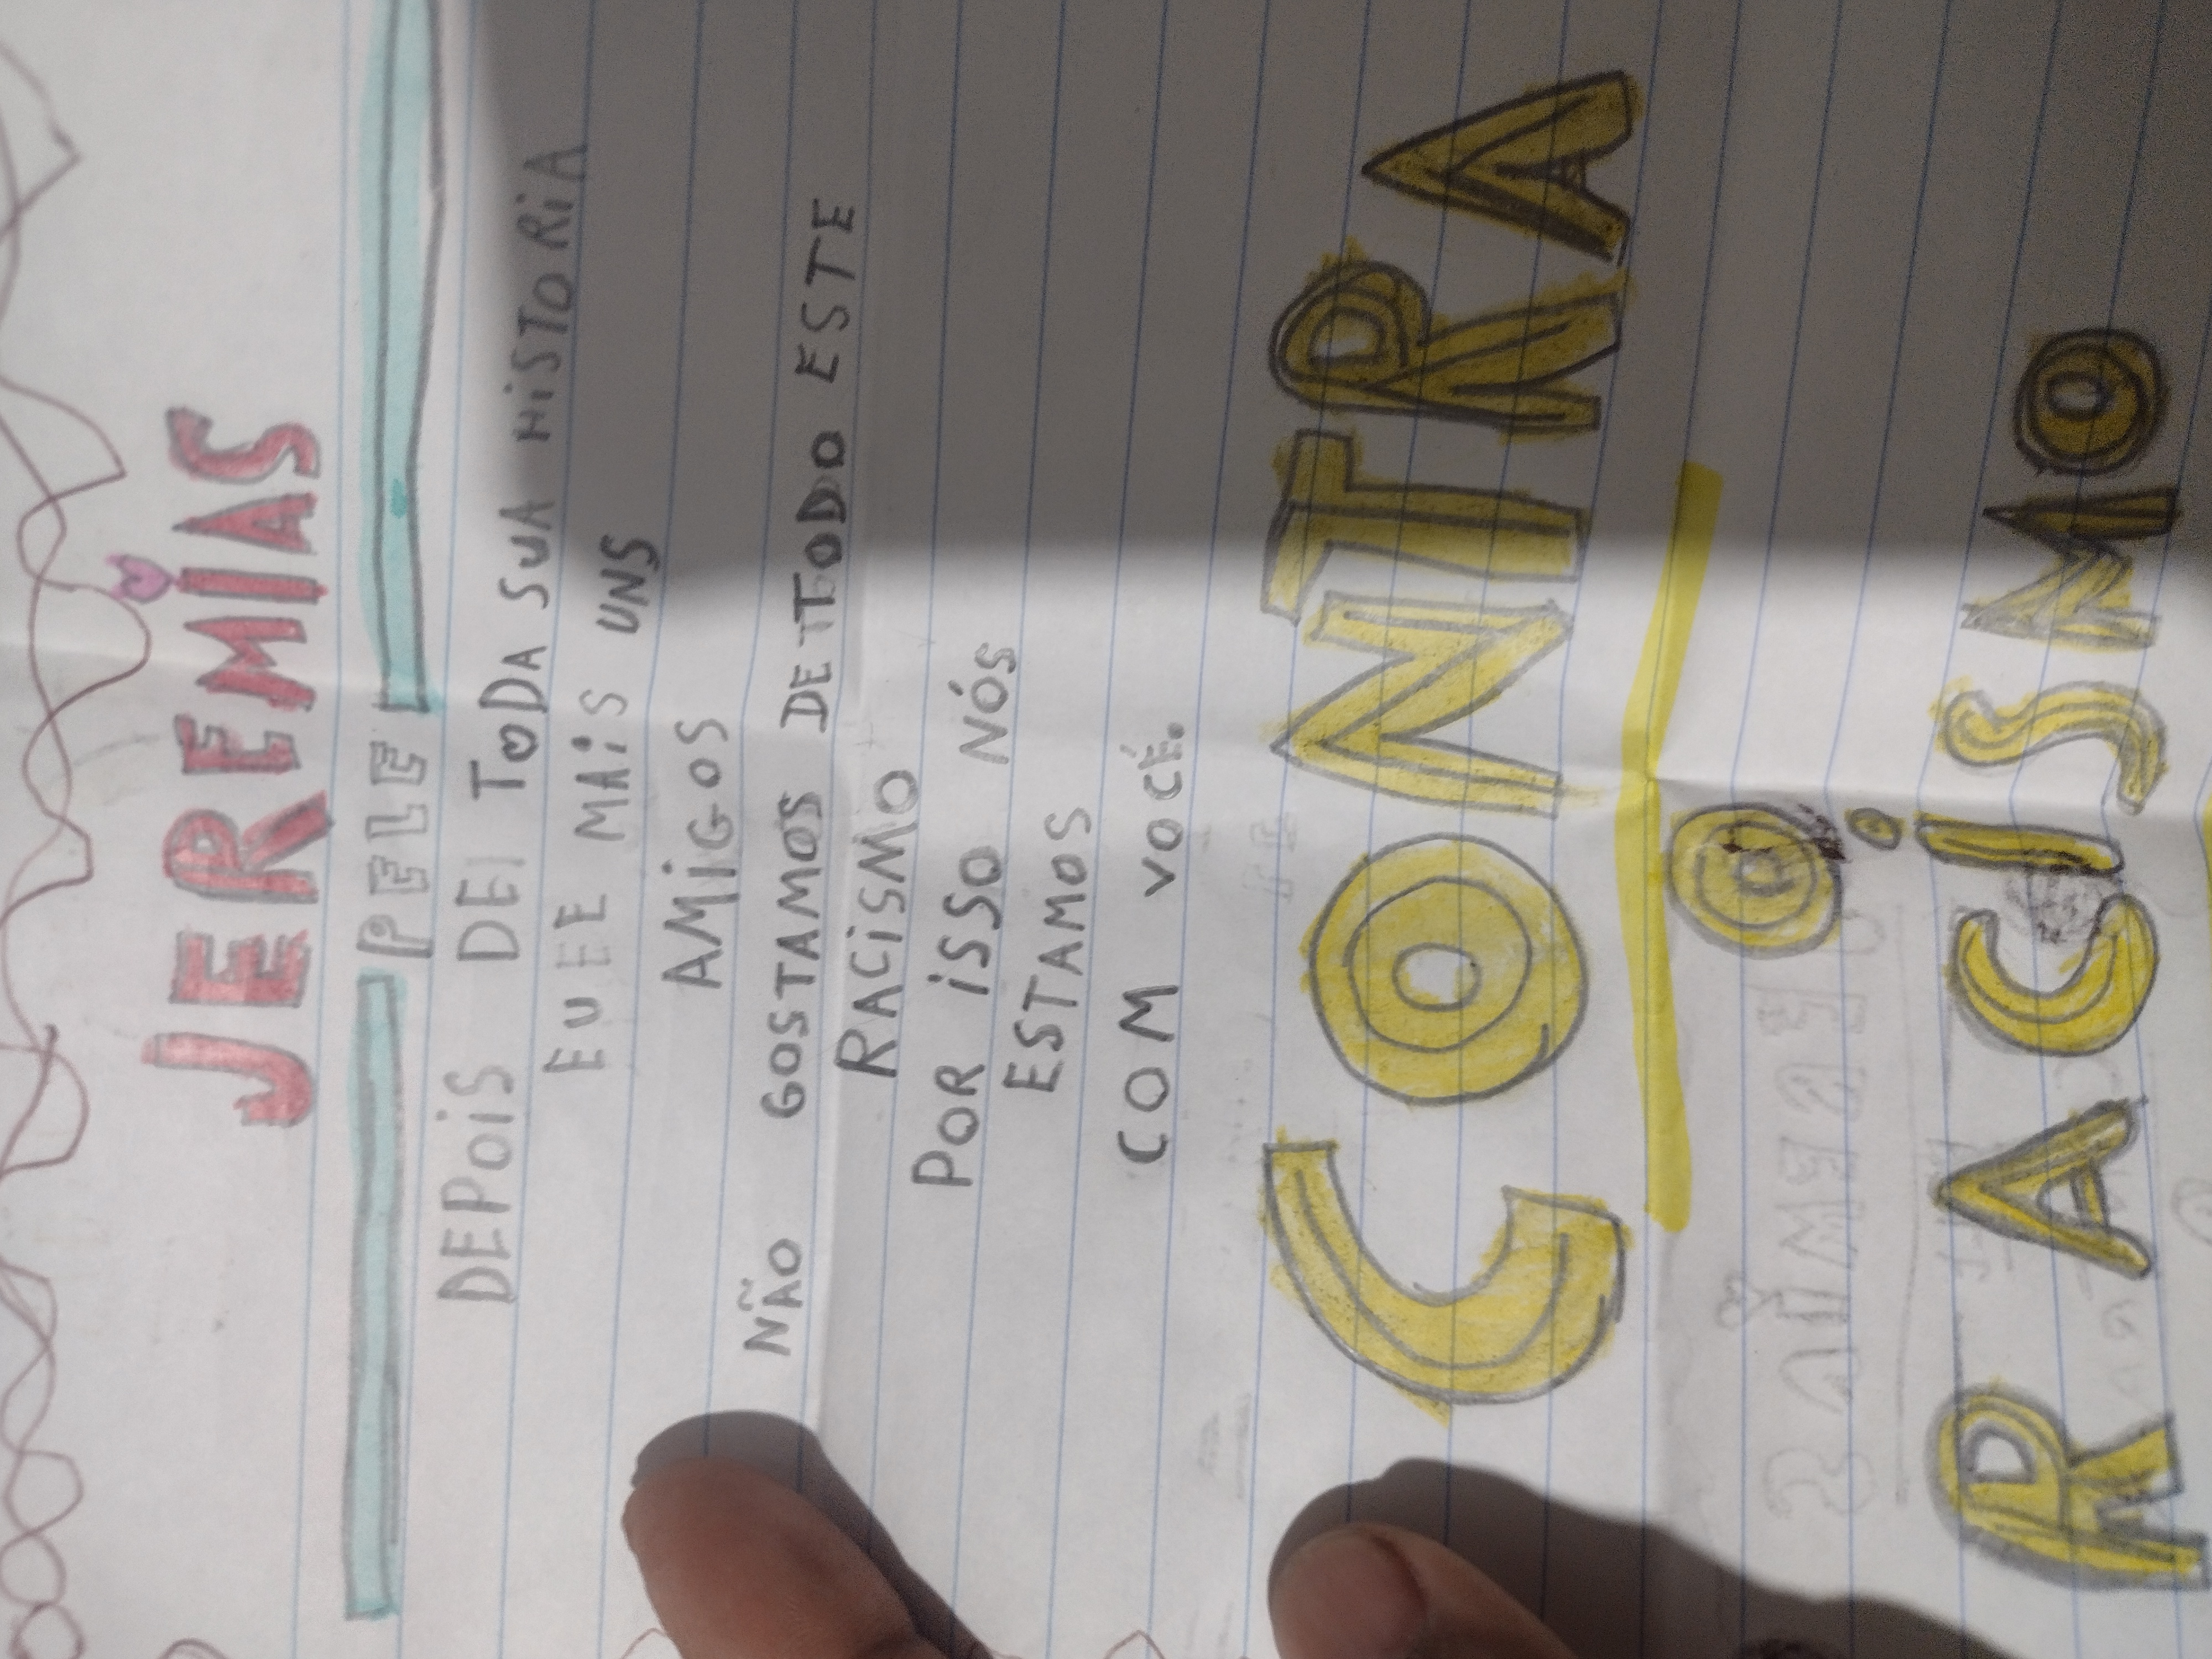 JEREMIAS
PELE
DEPOIS DE TODA SUA HISTORIA
EU E MAIS UNS
AMIGOS
NÃO GOSTAMOS DE TODO ESTE
RACISMO
POR ISSO NÓS
ESTAMOS
COM VOCÊ.
CONTRA
O
RACISMO